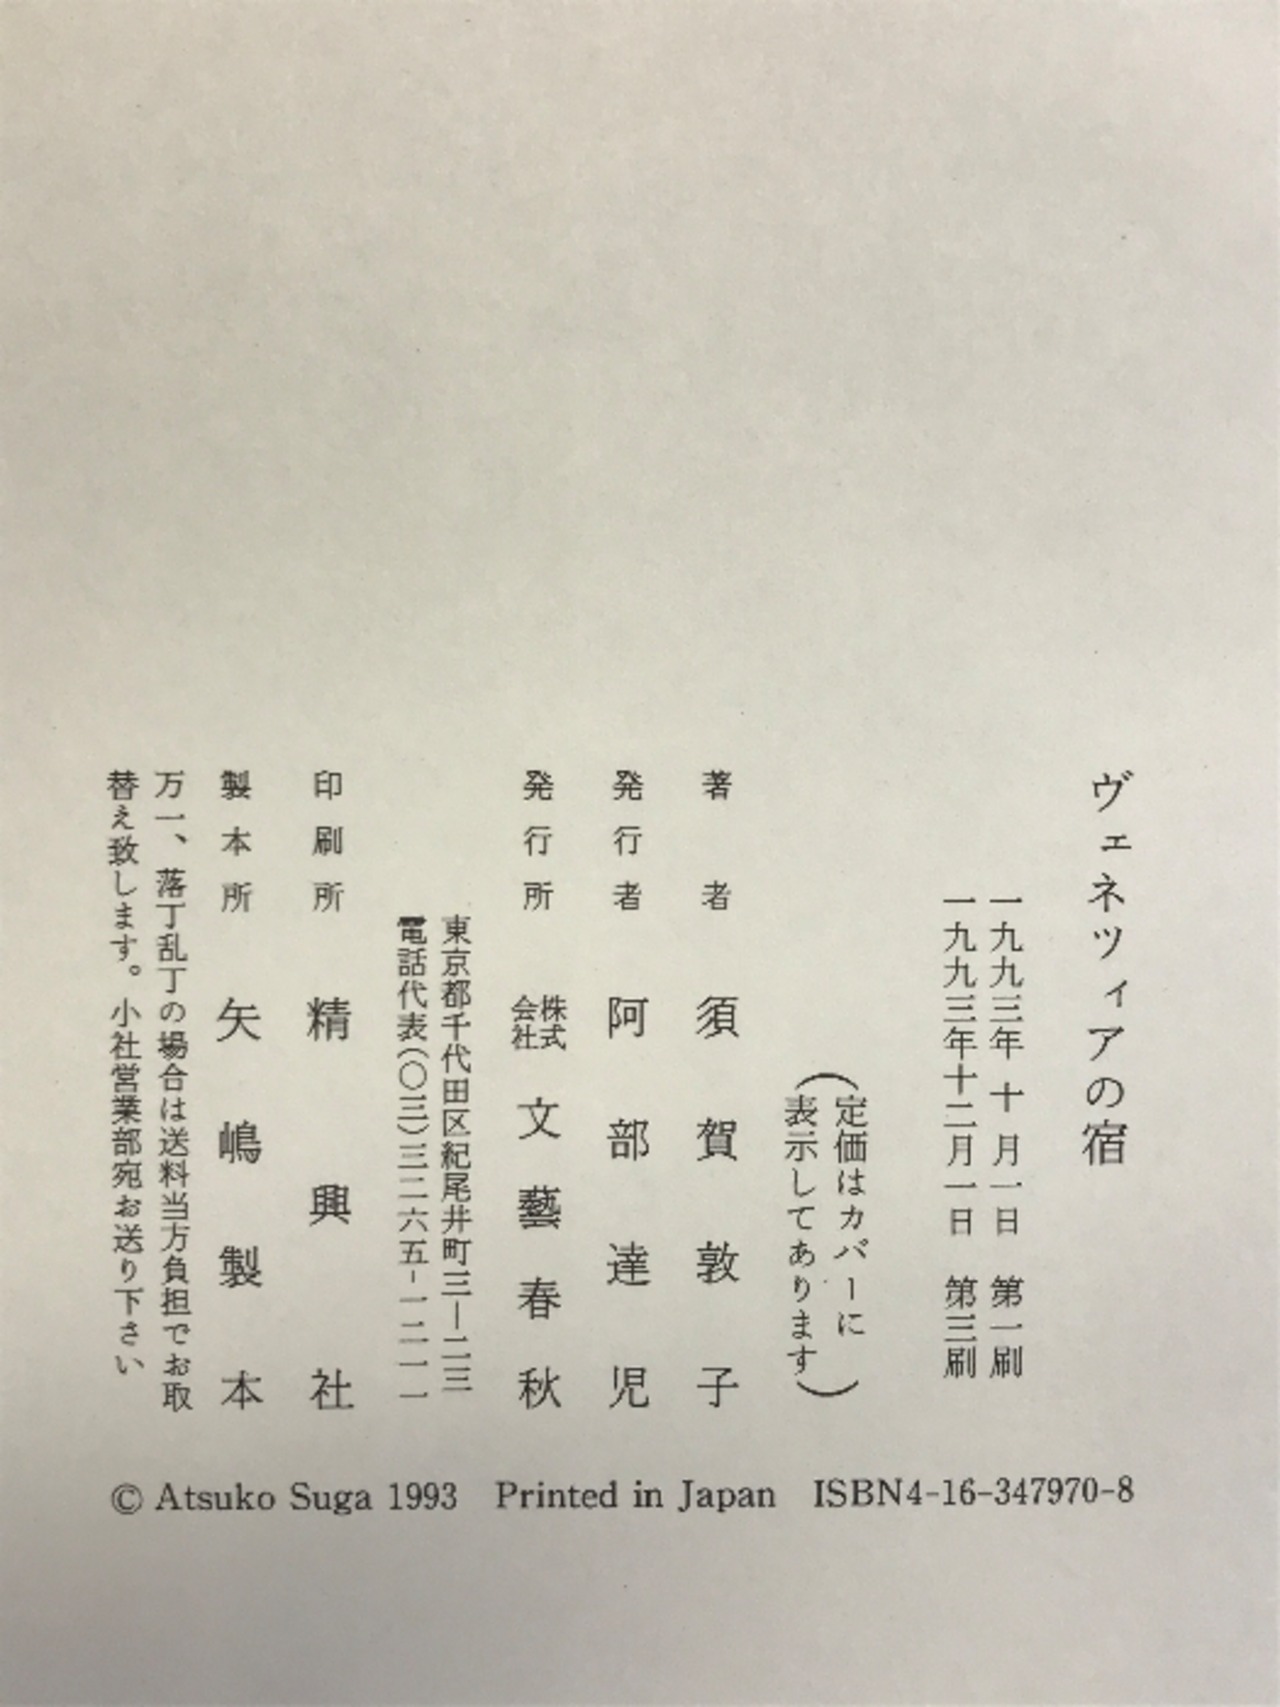 ヴェネツィアの宿
一九九三年十月一日 第一刷
一九九三年十二月一日 第三刷
(定価はカバーに
表示してあります)
著者 須賀敦子
発行者 阿部達児
発行所 株式会社 文藝春秋
東京都千代田区紀尾井町三―二三
電話代表(〇三)三二六五-一二一一
印刷所 精興社
製本所 矢嶋製本
万一、落丁乱丁の場合は送料当方負担でお取
替え致します。小社営業部宛お送り下さい
© Atsuko Suga 1993 Printed in Japan ISBN4-16-347970-8